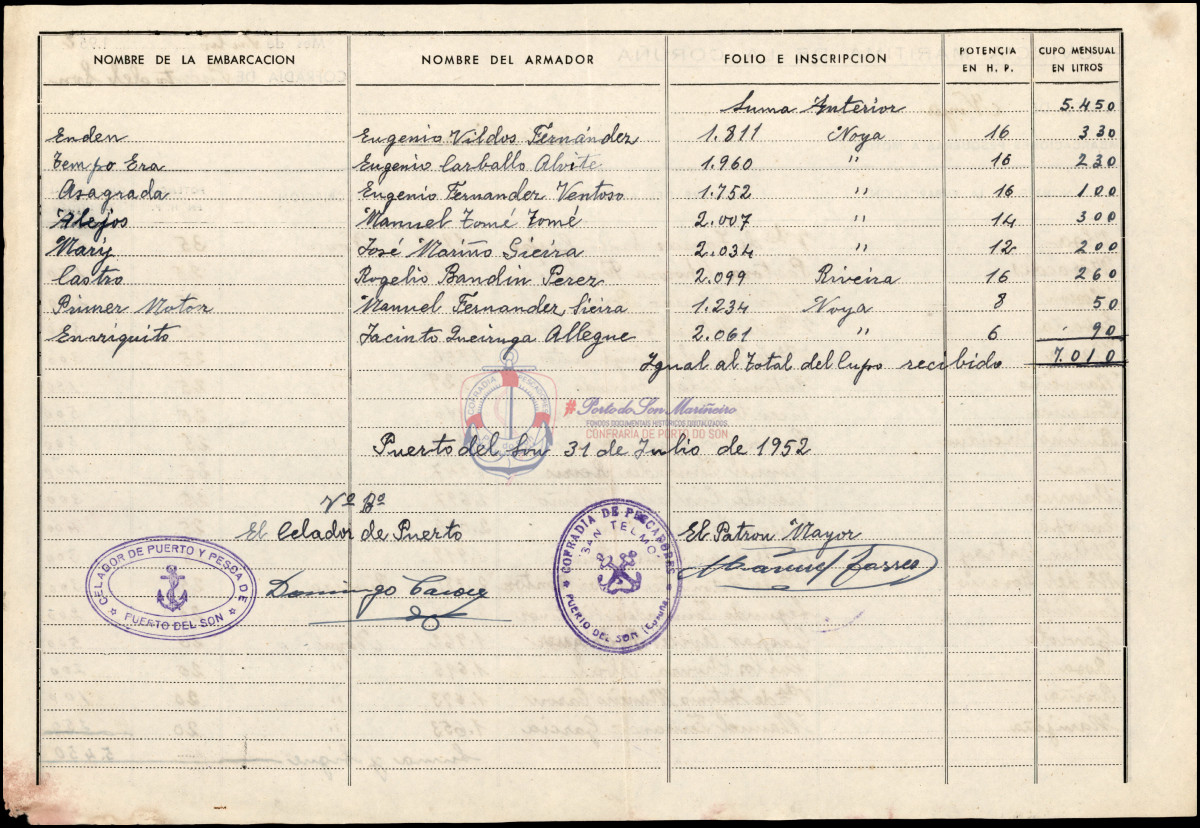 NOMBRE DE LA EMBARCACION NOMBRE DEL ARMADOR FOLIO E INSCRIPCION POTENCIA EN H. P. CUPO MENSUAL EN LITROS
Suma Anterior 5.450
Enden Eugenio Vildos Fernández 1.811 Noya 16 330
Tempo Era Eugenio Carballo Alvite 1.960 " 16 230
Asagrada Eugenio Fernandez Ventoso 1.752 " 16 100
Alejos Manuel Tomé Tomé 2.007 " 14 300
Mary José Mariño Sieira 2.034 " 12 200
Castro Rogelio Bandin Perez 2.099 Riveira 16 260
Primer Motor Manuel Fernandez Sieira 1.234 Noya 8 50
Enriquito Jacinto Queiruga Allegue 2.061 " 6 90
Igual al Total del Cupo recibido 7.010
COFRADIA PESCADORES
#PortodoSon Mariñeiro
FONDOS DOCUMENTAIS HISTÓRICOS DIXITALIZADOS
CONFRARÍA DE PORTO DO SON
Puerto del Son 31 de Julio de 1952
Vº Bº
El Celador de Puerto
El Patron Mayor
CELADOR DE PUERTO Y PESCA DE
PUERTO DEL SON
Domingo
COFRADIA DE PESCADORES
"SAN TELMO"
PUERTO DEL SON (Coruña)
Manuel